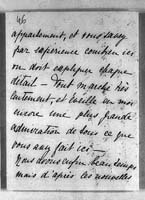 46
appartement, et vous savez
par expérience combien ici
on doit expliquer chaque
détail — Tout marche très
lentement, et laisse en moi
encore une plus grande
admiration de tous ce que
vous avez fait ici —
Nous avons enfin beau temps
mais d'après les nouvelles